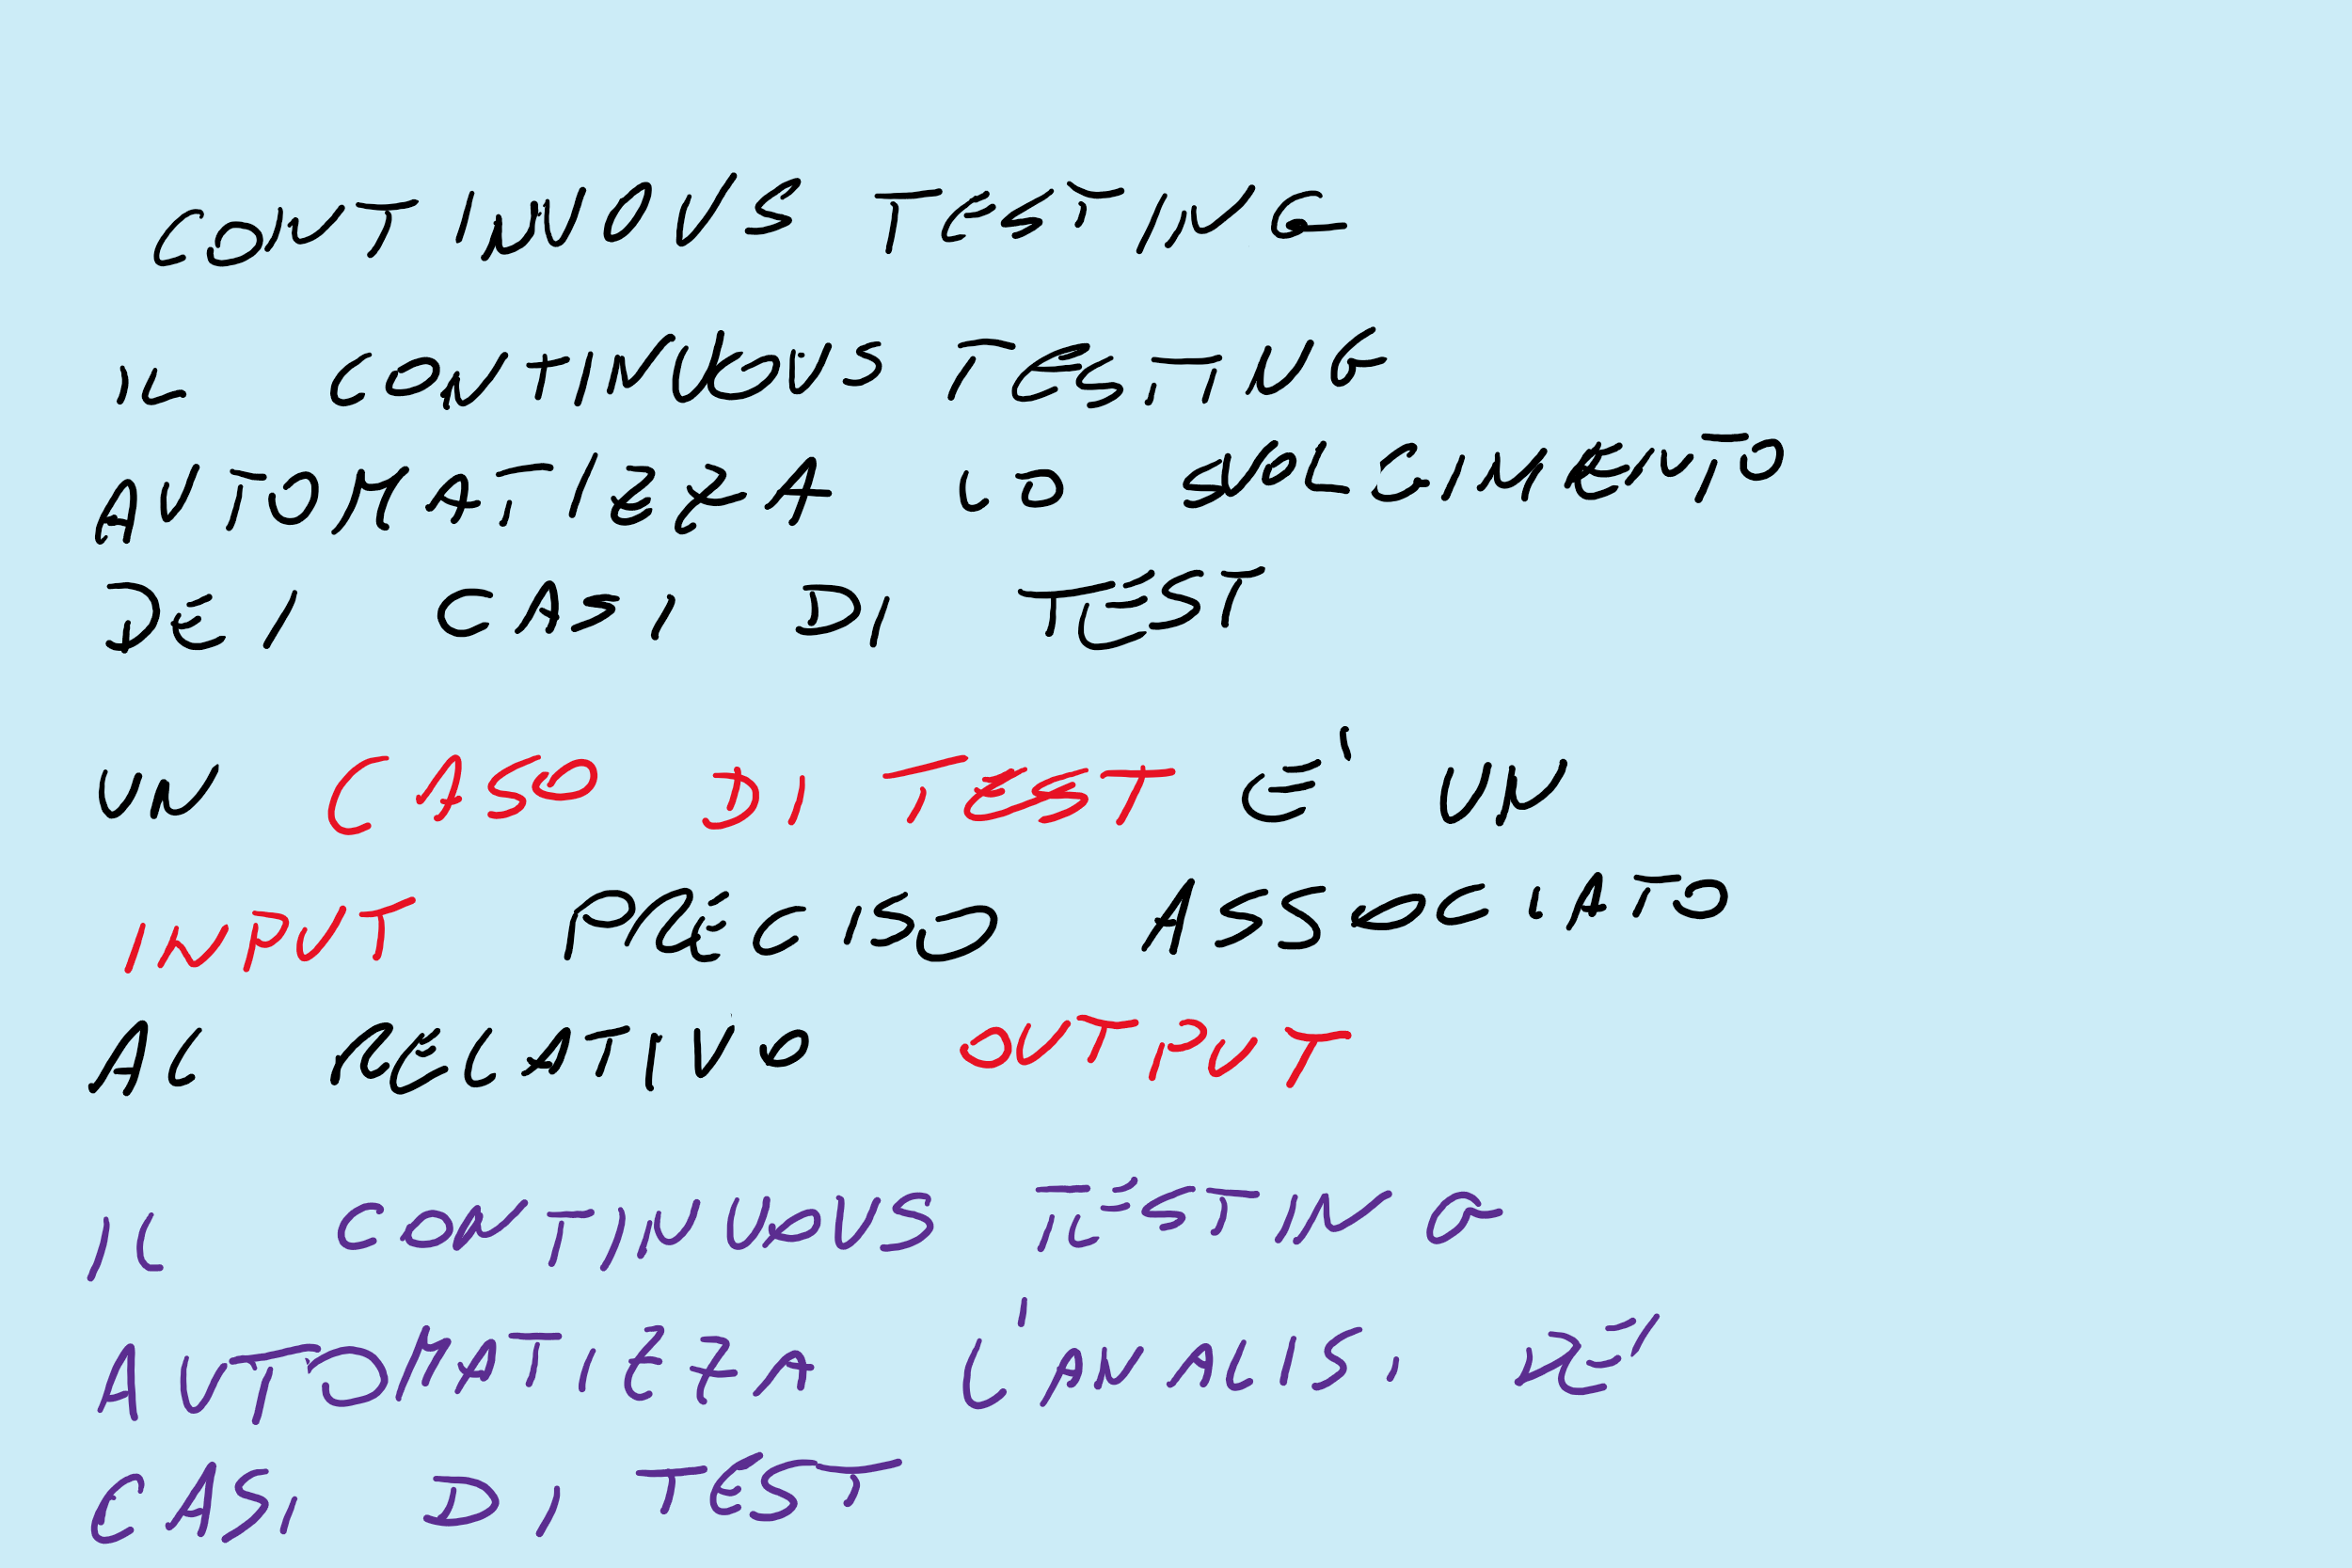 CONTINOUS TESTING
IL CONTINUOUS TESTING
AUTOMATIZZA LO SVOLGIMENTO
DEI CASI DI TEST
UN CASO DI TEST E' UN
INPUT PRECISO ASSOCIATO
AL RELATIVO OUTPUT
IL CONTINUOUS TESTING
AUTOMATIZZA L'ANALISI DEI
CASI DI TEST